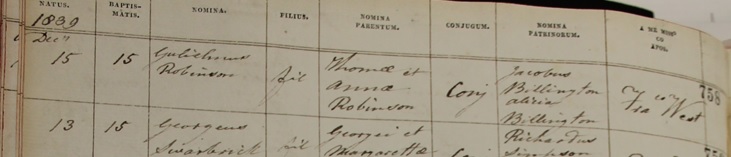 NATUS. BAPTIS-MATIS. NOMINA. FILIUS. NOMINA PARENTUM. CONJUGUM. NOMINA PATRINORUM. A ME MISS° CO APOS.
1839
Decr
15 15 Gulielmus Robinson fil Thomæ et Annæ Robinson Conj Jacobus Billington Alicia Billington West 758
13 15 Georgeus Swarbrick fil Georgii et Margarettæ Richardus Simpson